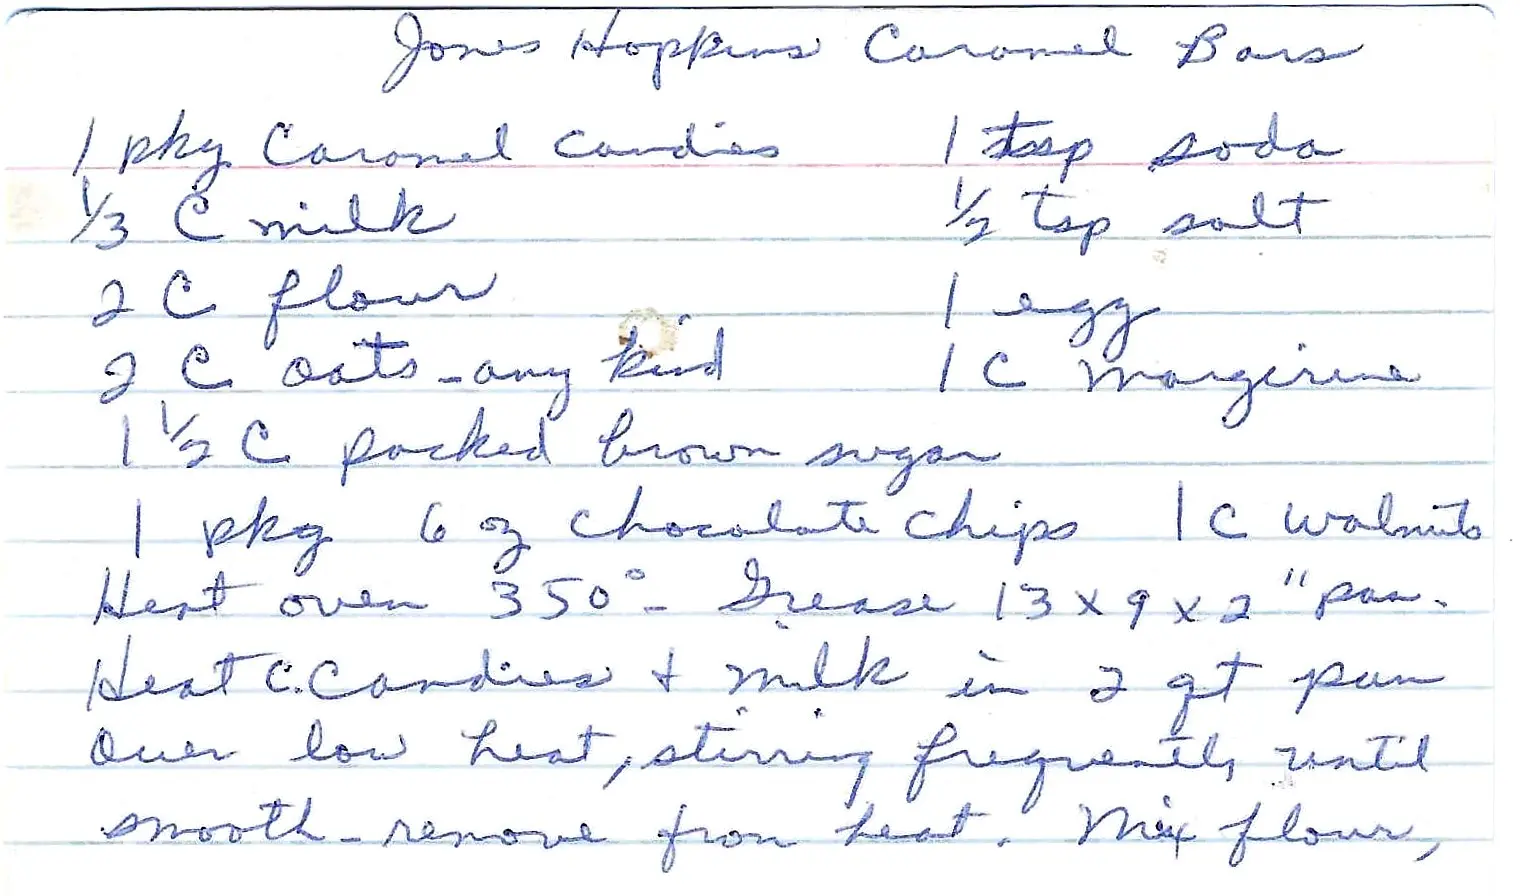 Jones Hopkins Caramel Bars
1 pkg Caramel Candies 1 tsp soda
1/3 C milk 1/2 tsp salt
2 C flour 1 egg
2 C oats - any kind 1 C Margirine
1 1/2 C packed brown sugar
1 pkg 6 oz chocolate chips 1 C walnuts
Heat oven 350° - Grease 13 x 9 x 2" pan.
Heat C. Candies + milk in 2 qt pan
over low heat, stirring frequently until
smooth - remove from heat. Mix flour,